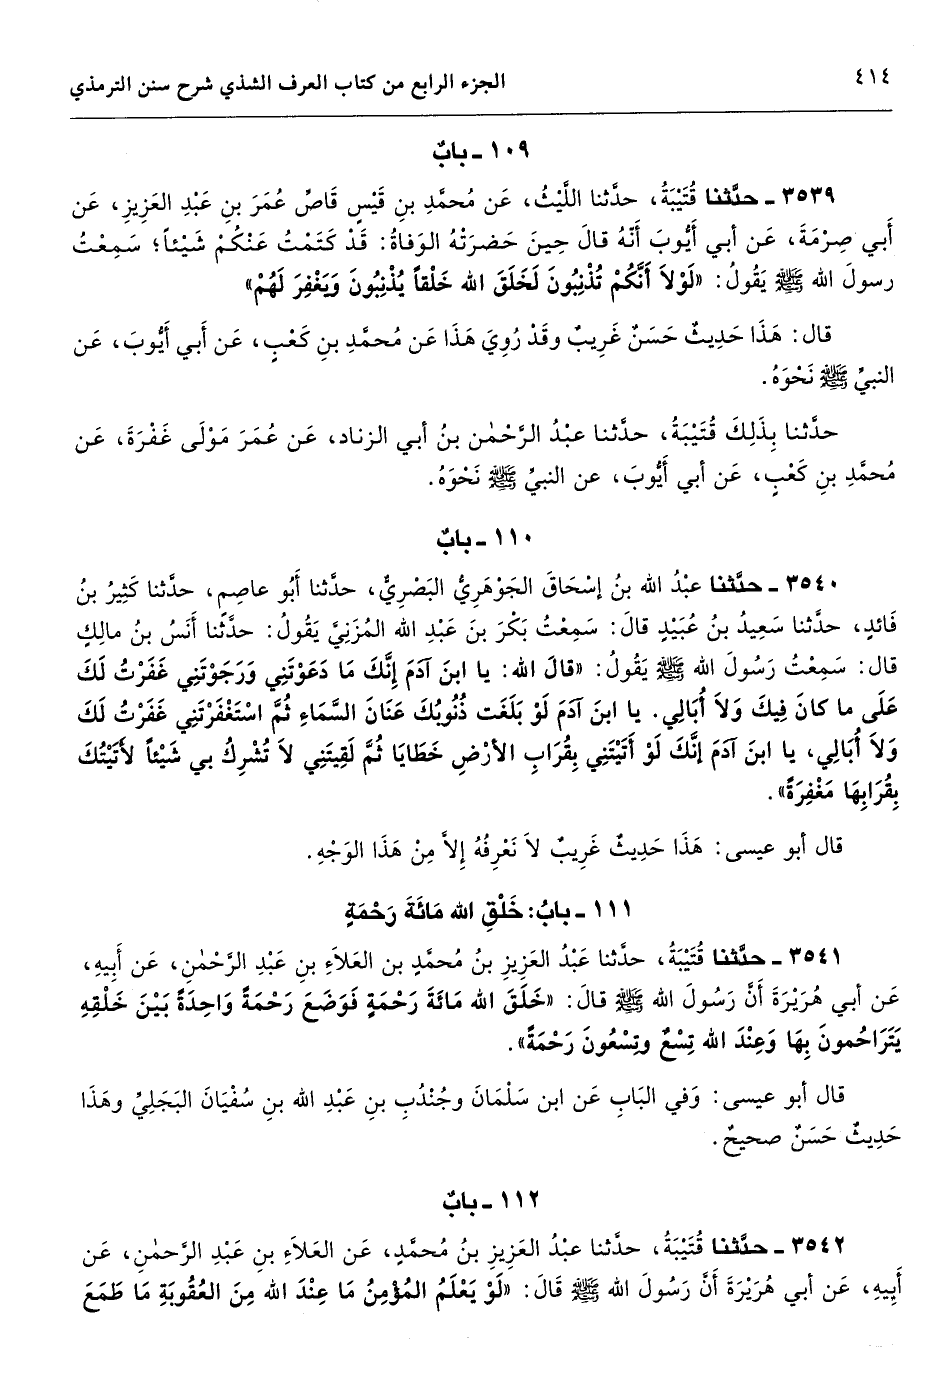 ٤١٤
الجزء الرابع من كتاب العرف الشذي شرح سنن الترمذي
١٠٩ ـ بابٌ
٣٥٣٩ ـ حدَّثنا قُتَيْبَةُ، حدَّثنا اللَّيْثُ، عَن مُحمَّدِ بنِ قَيْسٍ قَاصِّ عُمَرَ بنِ عَبْدِ العَزِيزِ، عَن
أَبي صِرْمَةَ، عَن أبي أَيُّوبَ أَنَّهُ قالَ حِينَ حَضرَتْهُ الوَفاةُ: قَدْ كَتَمْتُ عَنْكُمْ شَيْئاً؛ سَمِعْتُ
رسولَ الله ﷺ يَقُولُ: «لَوْلاَ أَنَّكُمْ تُذْنِبُونَ لَخَلَقَ الله خَلْقاً يُذْنِبُونَ وَيَغْفِرَ لَهُمْ»
قال: هَذَا حَدِيثٌ حَسَنٌ غَرِيبٌ وقَدْ رُوِيَ هَذَا عَن مُحمَّدِ بنِ كَعْبٍ، عَن أَبي أَيُّوبَ، عَن
النبيِّ ﷺ نَحْوَهُ.
حدَّثنا بِذَلِكَ قُتَيْبَةُ، حدَّثنا عبْدُ الرَّحْمٰن بنُ أبي الزناد، عَن عُمَرَ مَوْلَى غَفْرَةَ، عَن
مُحمَّدِ بنِ كَعْبٍ، عَن أبي أَيُّوبَ، عن النبيِّ ﷺ نَحْوَهُ.
١١٠ ـ بابٌ
٣٥٤٠ ـ حدَّثنا عبْدُ الله بنُ إسْحَاقَ الجَوْهَرِيُّ البَصْرِيُّ، حدَّثنا أَبُو عاصِمٍ، حدَّثنا كَثِيرُ بنُ
فَائدٍ، حدَّثنا سَعِيدُ بنُ عُبَيْدٍ قالَ: سَمِعْتُ بَكْرَ بنَ عَبْدِ الله المُزَنِيَّ يَقُولُ: حدَّثنا أَنَسُ بنُ مالِكٍ
قال: سَمِعْتُ رَسُولَ الله ﷺ يَقُولُ: «قالَ الله: يا ابنَ آدَمَ إنَّكَ مَا دَعَوْتَنِي وَرَجَوْتَنِي غَفَرْتُ لَكَ
عَلَى ما كانَ فِيكَ وَلاَ أُبَالِي. يا ابنَ آدَمَ لَوْ بَلَغَت ذُنُوبُكَ عَنَانَ السَّمَاءِ ثُمَّ اسْتَغْفَرْتَنِي غَفَرْتُ لَكَ
وَلاَ أُبَالِي، يا ابنَ آدَمَ إنَّكَ لَوْ أَتَيْتَنِي بِقُرَابِ الأرْضِ خَطَايَا ثُمَّ لَقِيتَنِي لاَ تُشْرِكُ بي شَيْئاً لأَتَيْتُكَ
بِقُرَابِهَا مَغْفِرَةً».
قال أبو عيسى: هَذَا حَدِيثٌ غَرِيبٌ لاَ نَعْرِفُهُ إلاَّ مِنْ هَذَا الوَجْهِ.
١١١ ـ بابُ: خَلْقِ الله مَائَةَ رَحْمَةٍ
٣٥٤١ ـ حدَّثنا قُتَيْبَةُ، حدَّثنا عَبْدُ العَزِيزِ بنُ مُحمَّدٍ بن العَلاَءِ بنِ عَبْدِ الرَّحْمٰنِ، عَن أَبِيهِ،
عَن أبي هُرَيْرَةَ أَنَّ رَسُولَ الله ﷺ قالَ: «خَلَقَ الله مَائَةَ رَحْمَةٍ فَوَضَعَ رَحْمَةً وَاحِدَةً بَيْنَ خَلْقِهِ
يَتَرَاحُمونَ بِهَا وَعِنْدَ الله تِسْعٌ وتِسْعُونَ رَحْمَةً».
قال أبو عيسى: وَفي البَابِ عَن ابن سَلْمَانَ وجُنْدُبِ بنِ عَبْدِ الله بنِ سُفْيَانَ البَجَلِيِّ وهَذَا
حَدِيثٌ حَسَنٌ صحيحٌ.
١١٢ ـ بابٌ
٣٥٤٢ ـ حدَّثنا قُتَيْبَةُ، حدَّثنا عبْدُ العَزِيزِ بنُ مُحمَّدٍ، عَن العَلاَءِ بنِ عَبْدِ الرَّحمٰنِ، عَن
أَبِيهِ، عَن أبي هُرَيْرَةَ أَنَّ رَسُولَ الله ﷺ قَالَ: «لَوْ يَعْلَمُ المُؤْمِنُ مَا عِنْدَ الله مِنَ العُقُوبَةِ مَا طَمَعَ